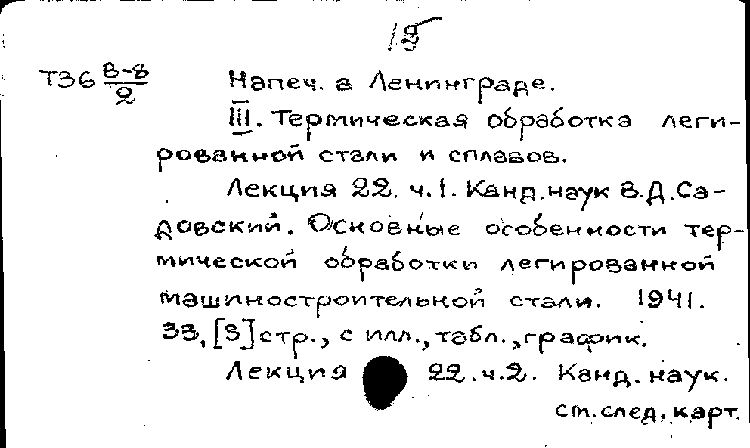 12
Т36 В-8/2 Напеч. в Ленинграде.
III. Термическая обработка леги-
рованной стали и сплавов.
Лекция 22. ч.1. Канд.наук В.Д.Са-
довский. Основные особенности тер-
мической обработки легированной
машиностроительной стали. 1941.
33,[3]стр., с илл.,табл.,график.
Лекция 22.ч.2. Канд.наук.
см.след.карт.